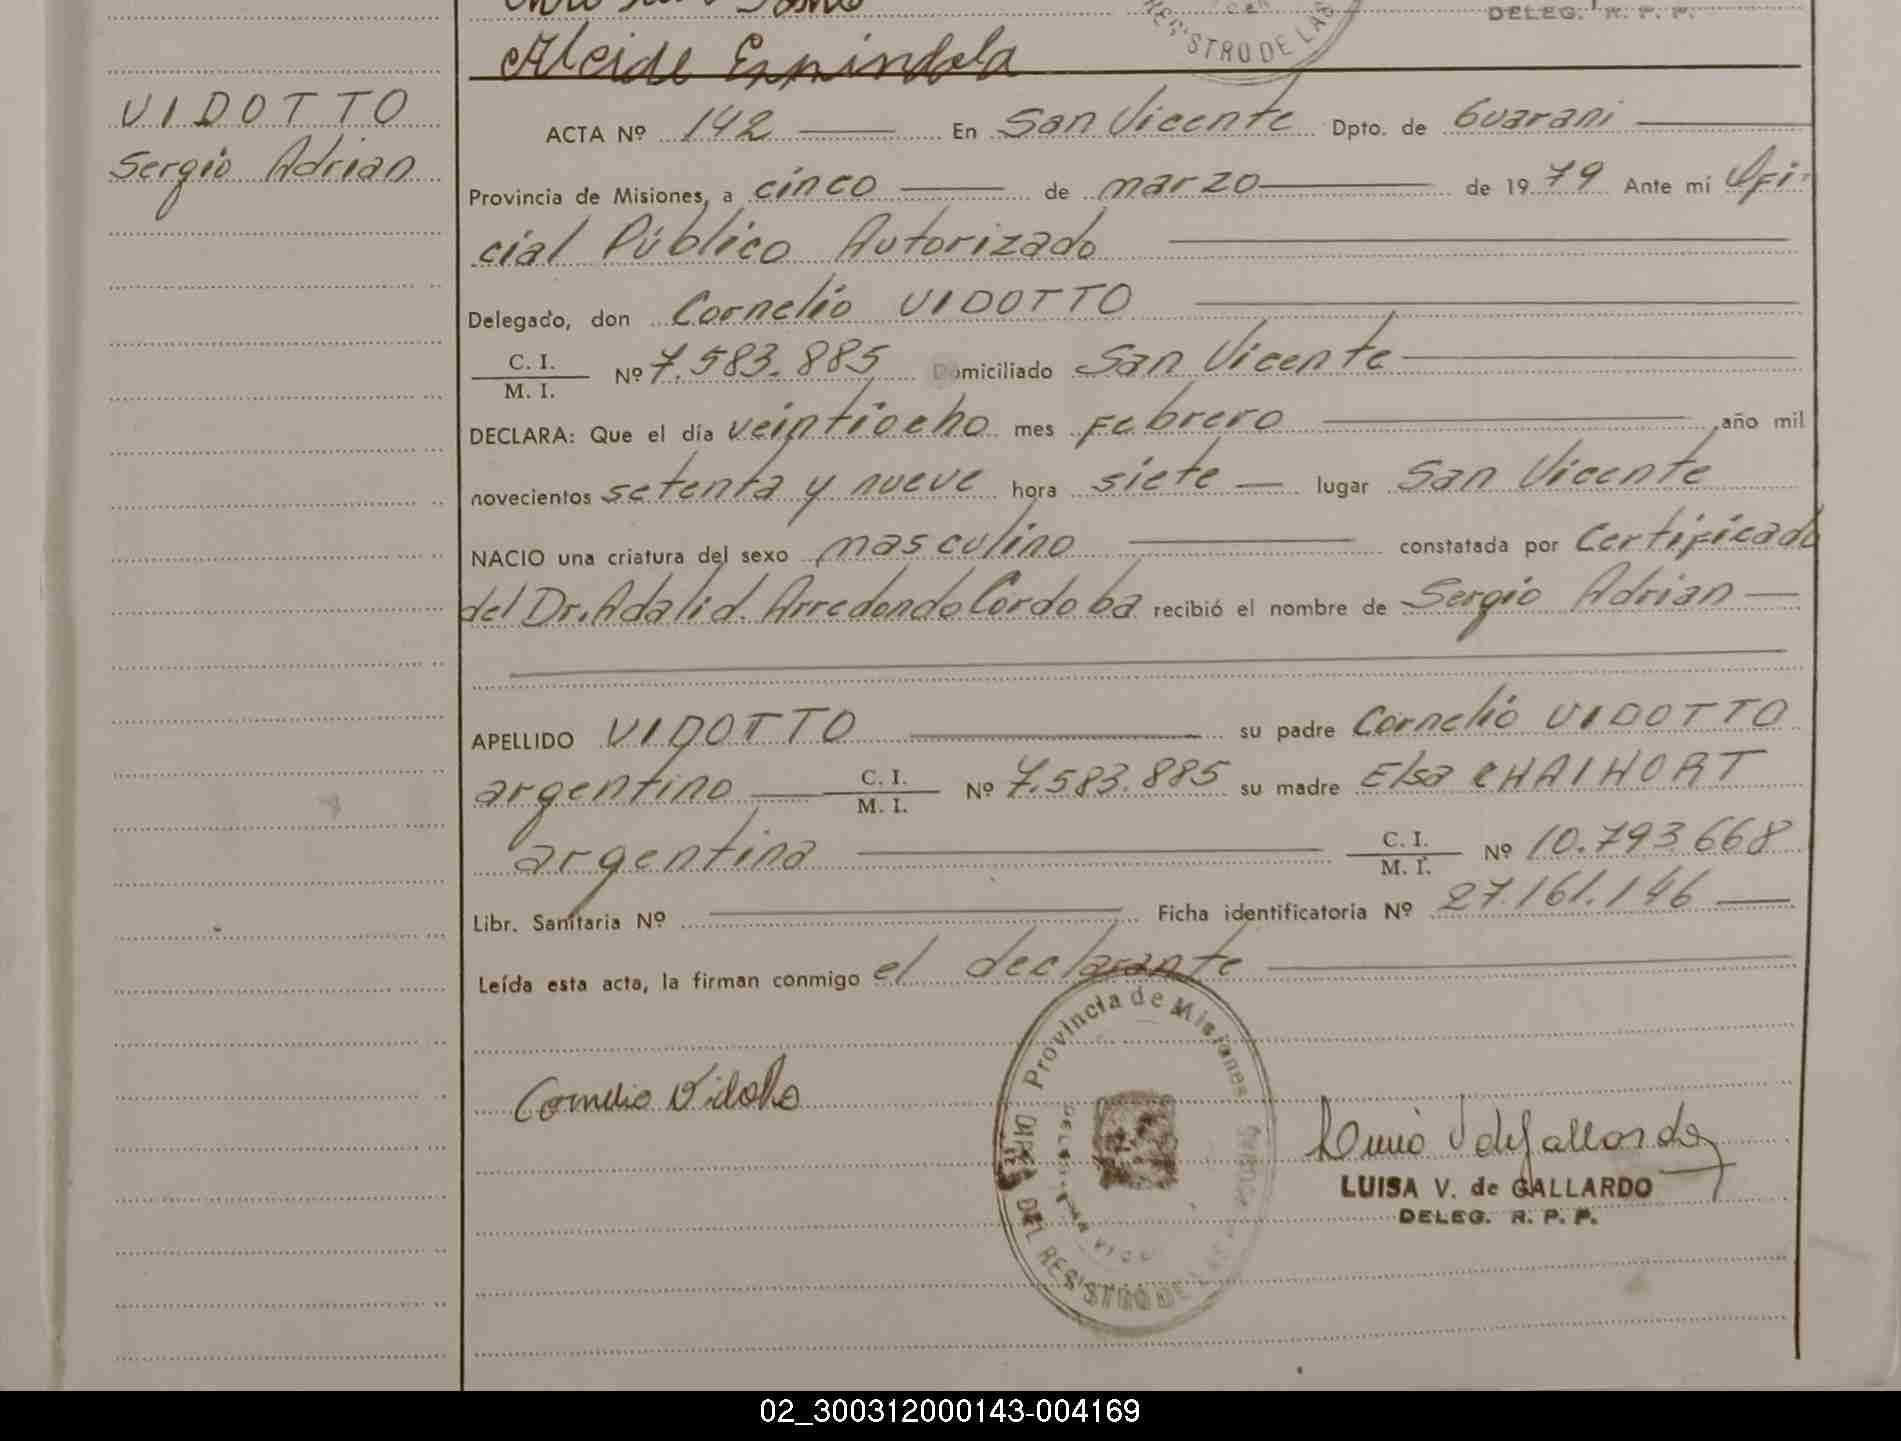 DELEG. R. P. P.
REGISTRO DE LAS
Alcide Espindola
VIDOTTO
Sergio Adrian
ACTA Nº 142 En San Vicente Dpto. de Guarani
Provincia de Misiones, a cinco de marzo de 1979 Ante mí Ofi-
cial Público Autorizado
Delegado, don Cornelio VIDOTTO
C. I.
M. I. Nº 7.583.885 Domiciliado San Vicente
DECLARA: Que el día veintiocho mes Febrero año mil
novecientos setenta y nueve hora siete lugar San Vicente
NACIO una criatura del sexo masculino constatada por Certificado
del Dr. Adalid. Arredondo Cordoba recibió el nombre de Sergio Adrian
APELLIDO VIDOTTO su padre Cornelio VIDOTTO
argentino C. I.
M. I. Nº 7.583.885 su madre Elsa CHAIHORT
argentina C. I.
M. I. Nº 10.793.668
Libr. Sanitaria Nº Ficha identificatoria Nº 27.161.146
Leída esta acta, la firman conmigo el declarante
Provincia de Misiones
DEL REGISTRO DE LAS
Cornelio Vidotto
LUISA V. de GALLARDO
DELEG. R. P. P.
02_300312000143-004169